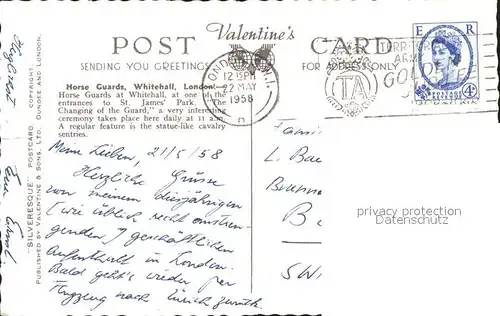 POST Valentine's CARD
SENDING YOU GREETINGS
FOR ADDRESS ONLY
Horse Guards, Whitehall, London.—
Horse Guards at Whitehall, at one of the
entrances to St. James' Park. "The
Changing of the Guard," a very interesting
ceremony takes place here daily at 11 a.m.
A regular feature is the statue-like cavalry
sentries.
"SILVERESQUE" POSTCARD. COPYRIGHT.
PUBLISHED BY VALENTINE & SONS, LTD. DUNDEE AND LONDON.
LONDON
12 15 PM
22 MAY
1958
TA
E R
POSTAGE
REVENUE
4D
Meine Lieben, 21/5/58
Herzliche Grüsse
von meinem diesjährigen
(wie üblich recht anstren-
genden) geschäftlichen
Aufenthalt in London.
Bald geht's wieder per
Flugzeug nach Zürich zurück.
Famil
L. Bau
B
SWI
privacy protection